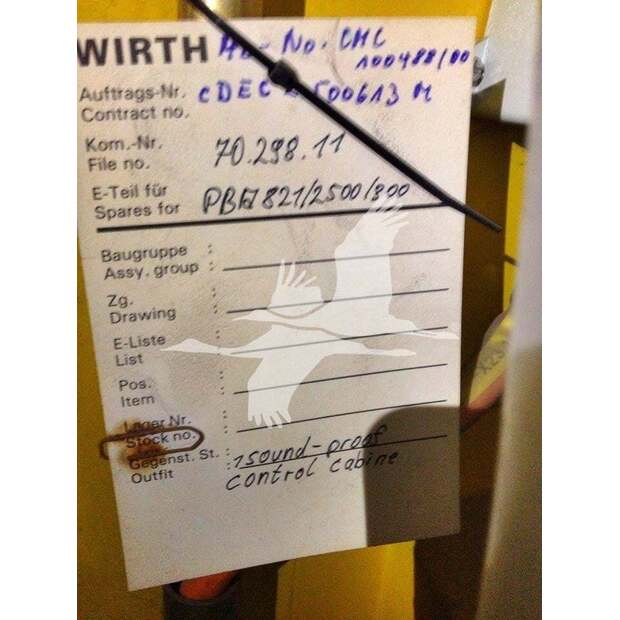 WIRTH No. CMC
100488/00
Auftrags-Nr. CDEC 500613 M
Contract no.
Kom.-Nr.
File no. 70.298.11
E-Teil für
Spares for PBA 821/2500/300
Baugruppe :
Assy. group :
Zg. :
Drawing
E-Liste :
List :
Pos. :
Item :
Lager Nr. :
Stock no. :
Gegenst. St. : 1 sound-proof
Outfit control cabine